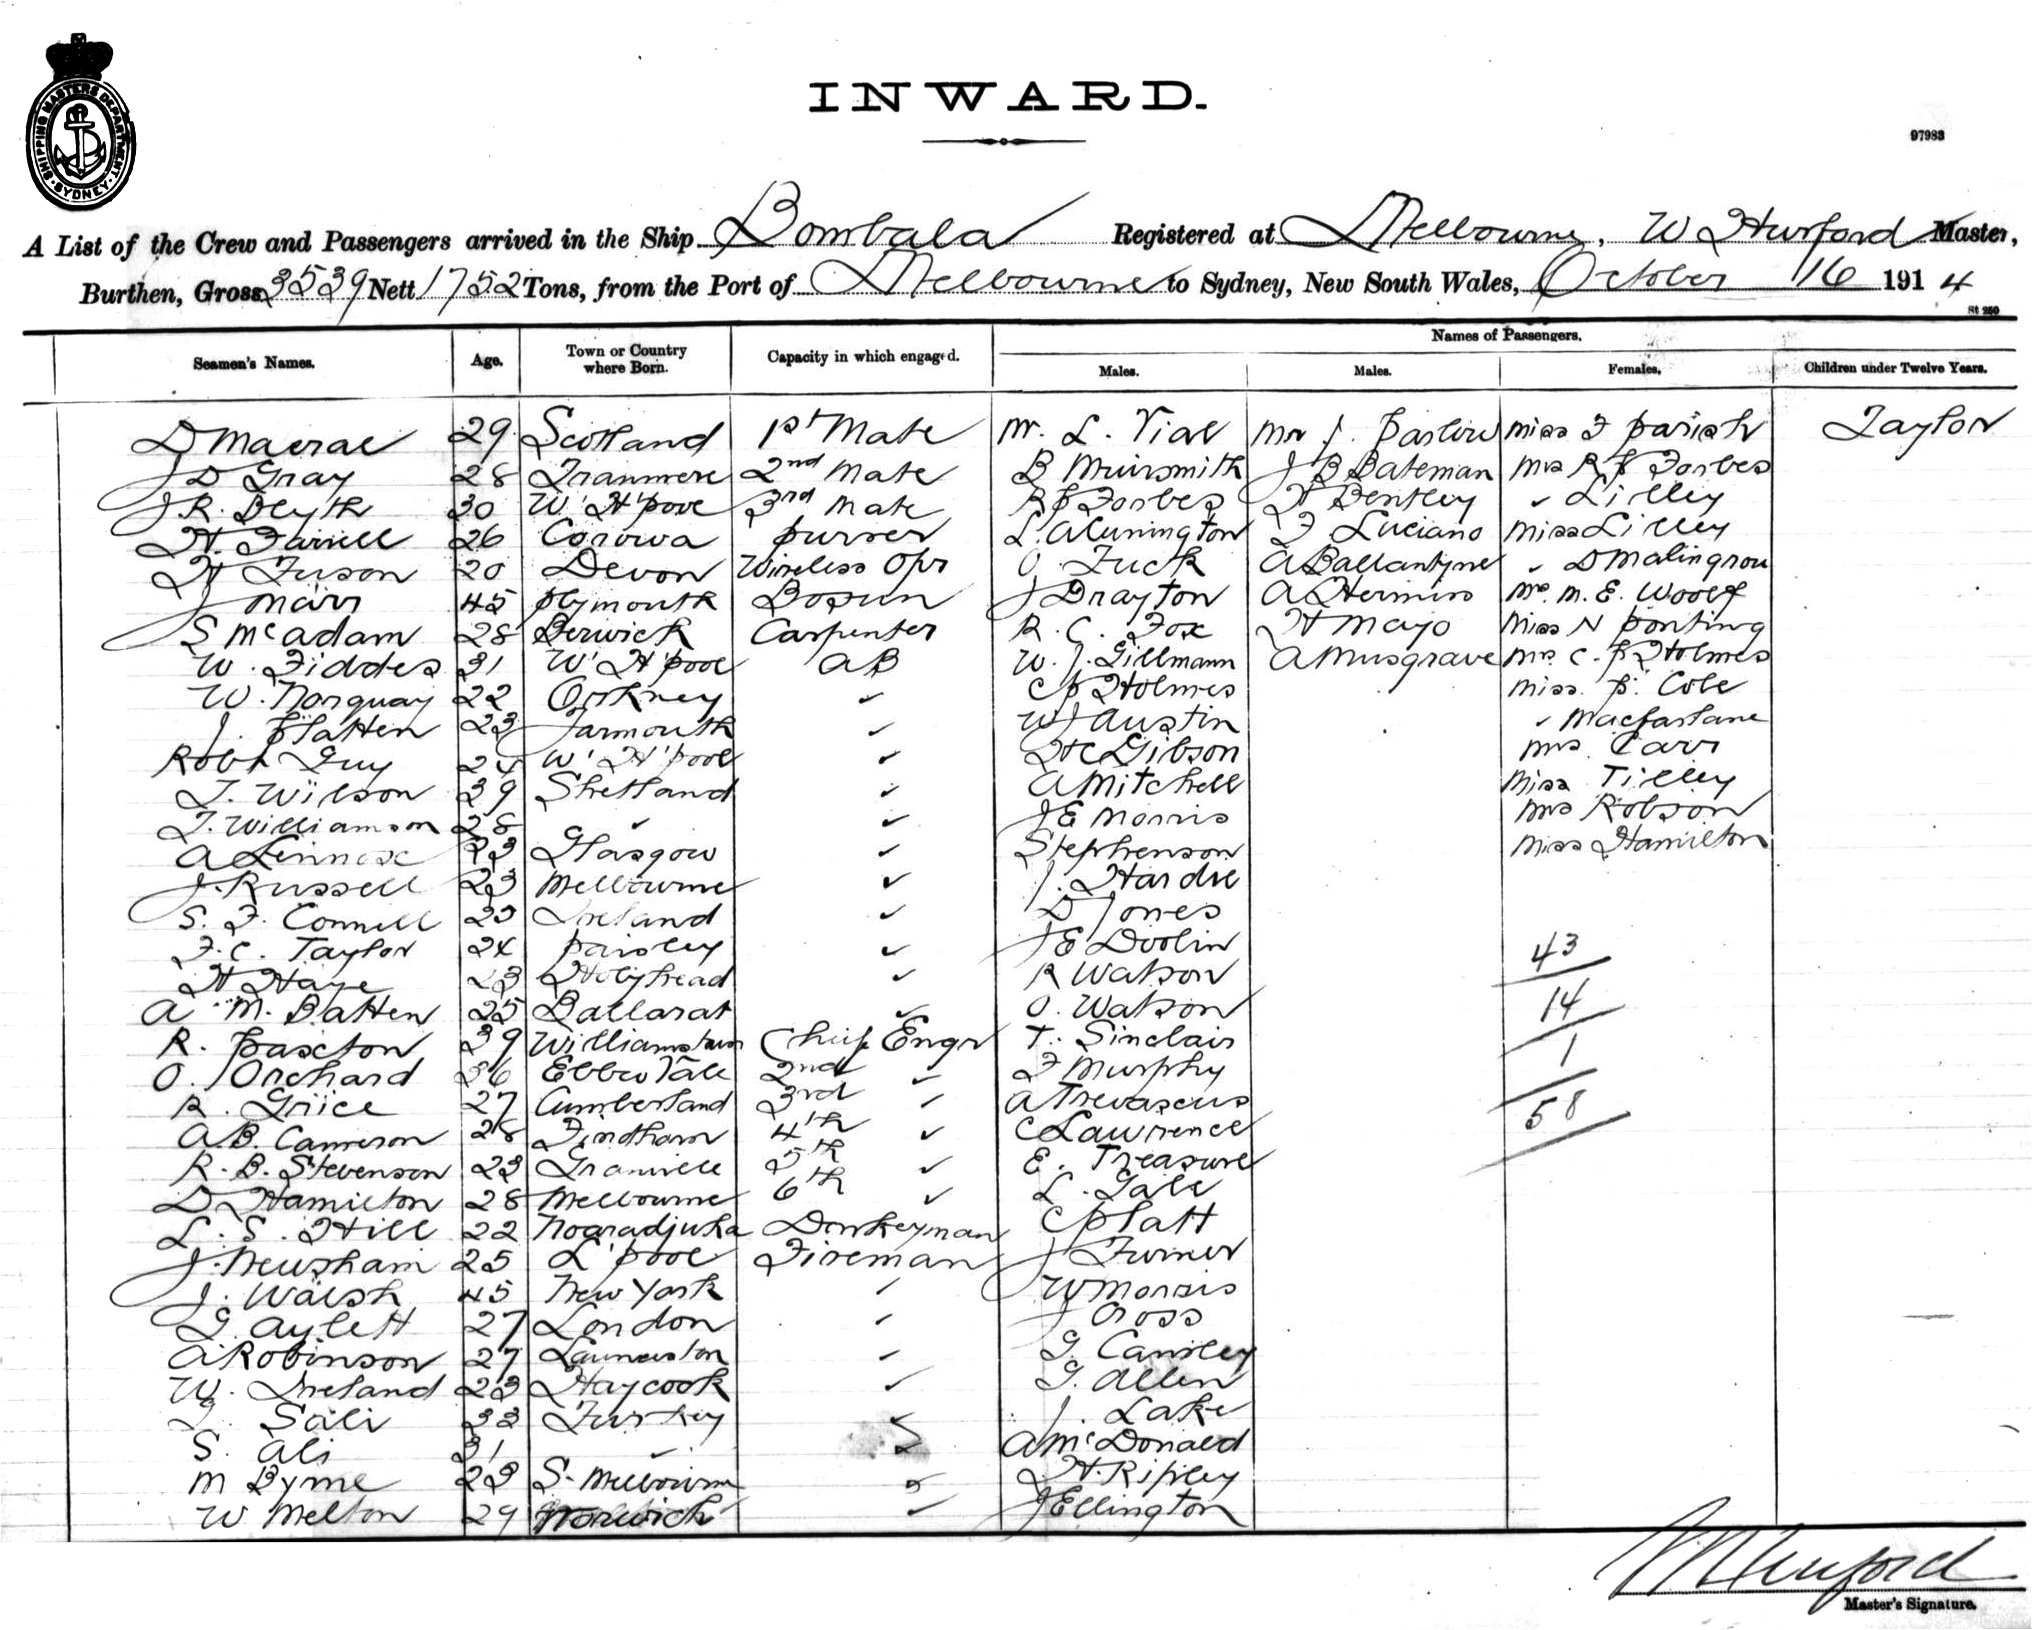 SHIPPING MASTERS DEPARTMENT · SYDNEY ·
INWARD.
97983
A List of the Crew and Passengers arrived in the Ship Bombala Registered at Melbourne, W Hurford Master,
Burthen, Gross 3539 Nett 1752 Tons, from the Port of Melbourne to Sydney, New South Wales, October 16 1914
St 250
Names of Passengers.
Seamen's Names. Age. Town or Country where Born. Capacity in which engaged. Males. Males. Females. Children under Twelve Years.
D Macrae 29 Scotland 1st Mate Mr. L. Vial Mr J. Barlow Miss F Parish Taylor
J D Gray 28 Tranmere 2nd Mate B Muirsmith J B Bateman Mrs R P Forbes
J R. Blyth 30 W' H'pool 3rd Mate R P Forbes H Bentley " Lilley
H. Farrell 26 Corowa purser L. A Cunington F Luciano Miss Lilley
H Tuson 20 Devon Wireless Opr O. Tuck A Ballantyne " D Malingrou
J Marr 45 plymouth Bosun J Drayton A Hermiss M. E. Woolf
S McAdam 28 Berwick Carpenter R. C. Fox H Mayo Miss N Ponting
W. Fiddes 31 W' H'pool AB W. J. Gillmann A Musgrave Mrs C. P Holmes
W. Norquay 22 Orkney " C P Holmes Miss P. Cole
J. Platten 23 Yarmouth " W J Austin " Macfarlane
Robt Guy 24 W' H'pool " H C Gibson Mrs Carr
T. Wilson 39 Shetland " A Mitchell Miss Tilley
T. Williamson 28 " " J E Morris Mrs Robson
A Lennox 23 Glasgow " Stephenson Miss Hamilton
J. Russell 23 Melbourne " J. Hardie
S. F. Connell 23 Ireland " D Jones
F. C. Taylor 24 paisley " J E Doolin 43
H Haye 23 Holyhead " R Watson
A M. Batten 25 Ballarat " O. Watson 14
R. Paxton 39 Williamstown Chief Engr T. Sinclair 1
O. Orchard 36 Ebbw Vale 2nd " F Murphy
R. Grice 27 Cumberland 3rd " A Trevascus 58
A B. Cameron 28 Findham 4th " C Lawrence
R. B. Stevenson 23 Granville 5th " E. Treasure
D Hamilton 28 Melbourne 6th " L. Gale
L. S. Hill 22 Noaradjuha Donkeyman C Platt
J. Newsham 25 L'pool Fireman J Turner
J. Walsh 45 New York " W Morris
G. Aylett 27 London " J Cross
A Robinson 27 Launceston " G. Cansley
W. Ireland 23 Haycock " G. Allen
Sali 33 Turkey " J. Lake
S. Ali 31 " " A McDonald
M Byrne 23 S. Melbourne " H. Ripley
W Melton 29 Norwich " J Ellington
W Hurford
Master's Signature.